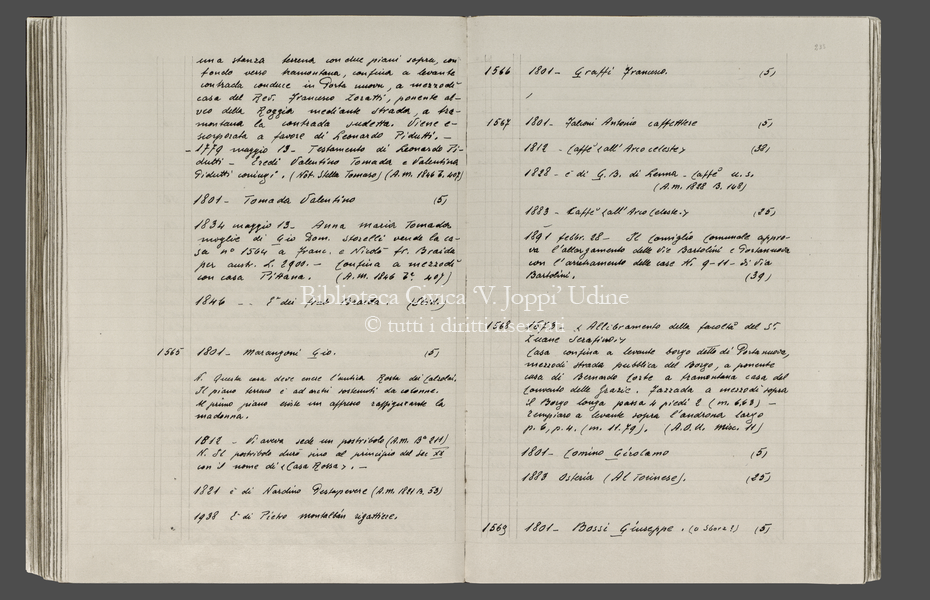 una stanza terrena con due piani sopra, con
fondo verso tramontana, confina a levante
contrada conduce in Porta nuova, a mezzodì
casa del Rev. Francesco Zoratti, ponente al-
veo della Roggia mediante strada, a tra-
montana la contrada sudetta. Viene e-
scorporata a favore di Leonardo Pidutti. —
- 1779 maggio 13 - Testamento di Leonardo Pi-
dutti - Eredi Valentino Tomada e Valentina
Pidutti coniugi. (Not. Stella Tomaso) (A.m. 1846 407)
1801 - Tomada Valentino (5)
1834 maggio 13 - Anna Maria Tomada
moglie di Gio Dom. Storelli vende la ca-
sa nº 1564 a Franc. e Nicolò fr. Braida
per austr. L. 2900. - Confina a mezzodì
con casa Pittana. (A.m. 1846 407)
1846 - dei Braida.
1565 1801 - Marangoni Gio. (5)
N. Questa casa deve essere l'antica Rosta dei Calzolai.
Il piano terreno è ad archi sostenuti da colonne.
Al primo piano esiste un affresco raffigurante la
madonna.
1812 - Vi aveva sede un postribolo (A.m. Bª 211)
N. Il postribolo durò sino al principio del sec XX
con il nome di "Casa Rossa". —
1821 è di Nardino Pestapevere (A.m. 1821 B. 53)
1938 È di Pietro Montalbàn rigattiere.
1566 1801 - Graffi Francesco. (5)
1567 1801 - Faleoni Antonio caffettiere (5)
1812 - Caffè "all'Arco celeste" (38)
1828 - è di G.B. di Lenna - Caffè u.s.
(A.m. 1828 B. 148)
1883 - Caffè "all'Arco Celeste." (25)
1891 febbr. 28 - Il Consiglio Comunale appro-
va l'allargamento delle vie Bartolini e Portanuova
con l'arretramento delle case N. 9-11 - di Via
Bartolini. (39)
Biblioteca Civica 'V. Joppi' Udine
© tutti i diritti riservati
1568 "Allibramento della facoltà del Sr
Zuane Serafino."
Casa confina a levante borgo detto di Porta nuova,
mezzodì strada pubblica del Borgo, a ponente
casa di Bernardo Corte a tramontana casa del
Convento delle Grazie. Fazzada a mezzodì sopra
il Borgo longa passa 4 piedi 2 (m. 6,63) -
Zempiaro a levante sopra l'androna largo
p. 6, p. 4. (m. 11.79). (A.O.U. Misc. 11)
1801 - Comino Girolamo (5)
1883 Osteria (Al Torinese). (25)
1569 1801 - Bossi Giuseppe. (o Sbora?) (5)